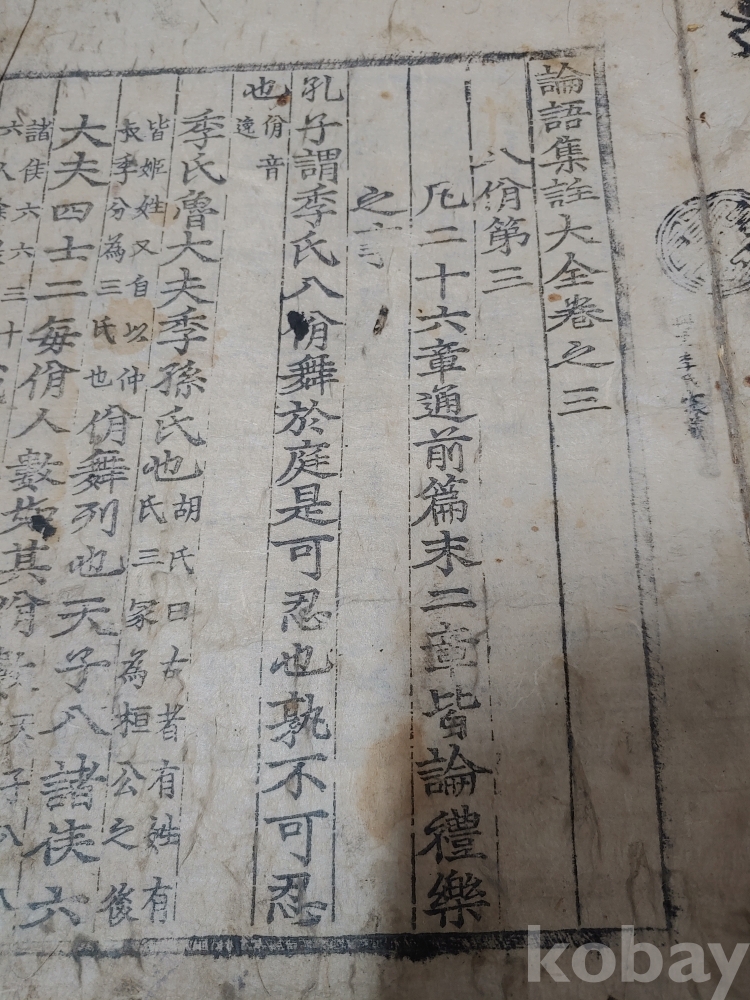 論語集註大全卷之三
八佾第三
凡二十六章通前篇末二章皆論禮樂
之事
孔子謂季氏八佾舞於庭是可忍也孰不可忍
也佾音逸
季氏魯大夫季孫氏也胡氏曰古者有姓有
氏三家為桓公之後
皆姬姓又自以仲
長季分為三氏也佾舞列也天子八諸侯六
大夫四士二每佾人數如其佾數天子八八
諸侯六六三十
kobay